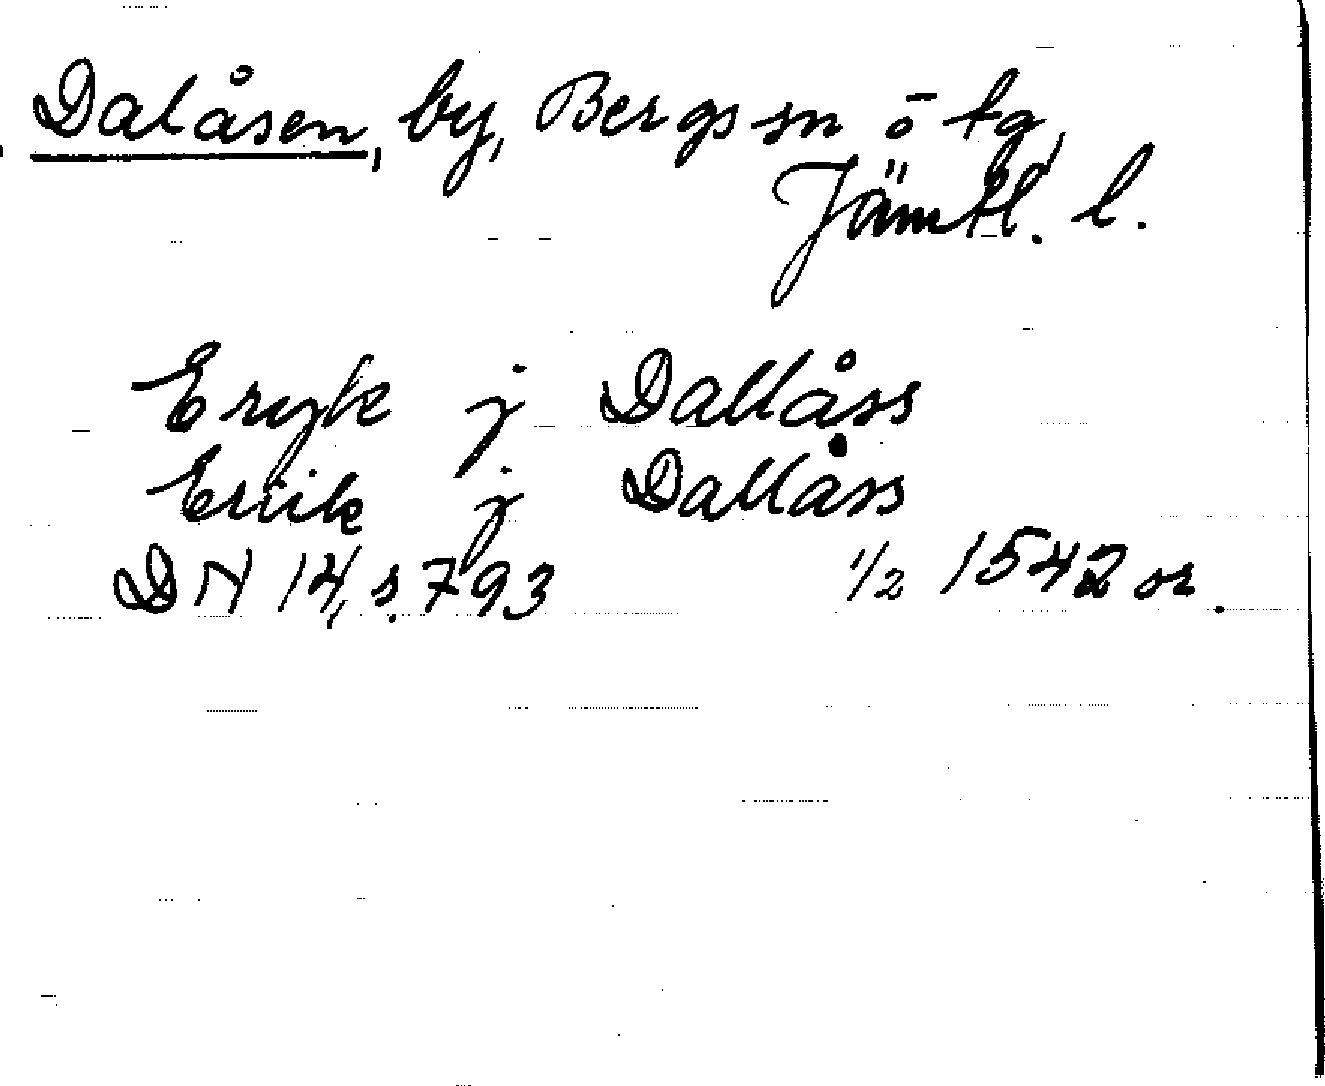 Dalåsen, by, Bergs sn o tg,
Jämtl. l.
Eryk j Dallåss
Erik j Dallåss
DN 14, s. 793 1/2 1542 or.